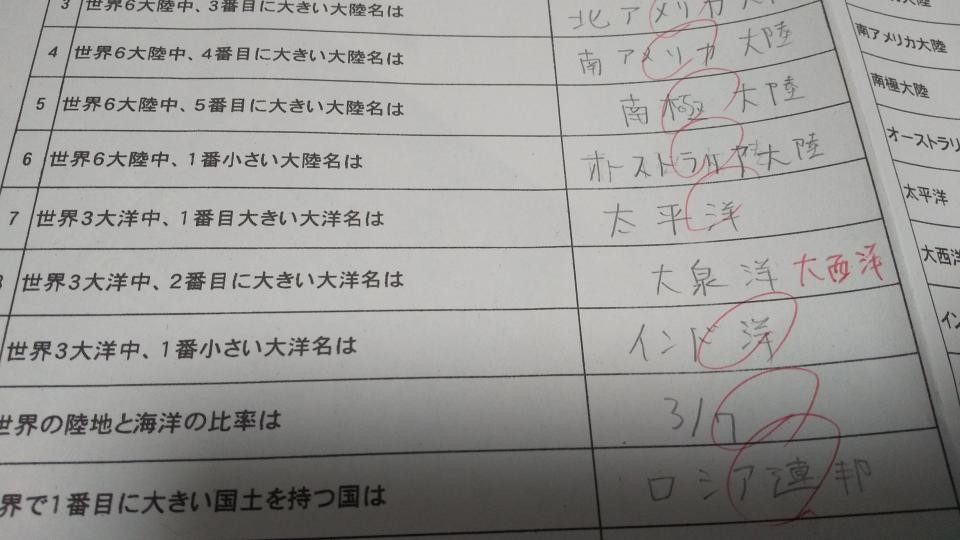 3 世界6大陸中、3番目に大きい大陸名は 北アメリカ大陸
4 世界6大陸中、4番目に大きい大陸名は 南アメリカ 大陸
南アメリカ大陸
5 世界6大陸中、5番目に大きい大陸名は 南極 大陸
南極大陸
6 世界6大陸中、1番小さい大陸名は オーストラリア大陸
オーストラリ
7 世界3大洋中、1番目大きい大洋名は 太平洋
太平洋
世界3大洋中、2番目に大きい大洋名は 大泉洋 大西洋
大西洋
世界3大洋中、1番小さい大洋名は インド洋
イン
世界の陸地と海洋の比率は 3/7
界で1番目に大きい国土を持つ国は ロシア連邦